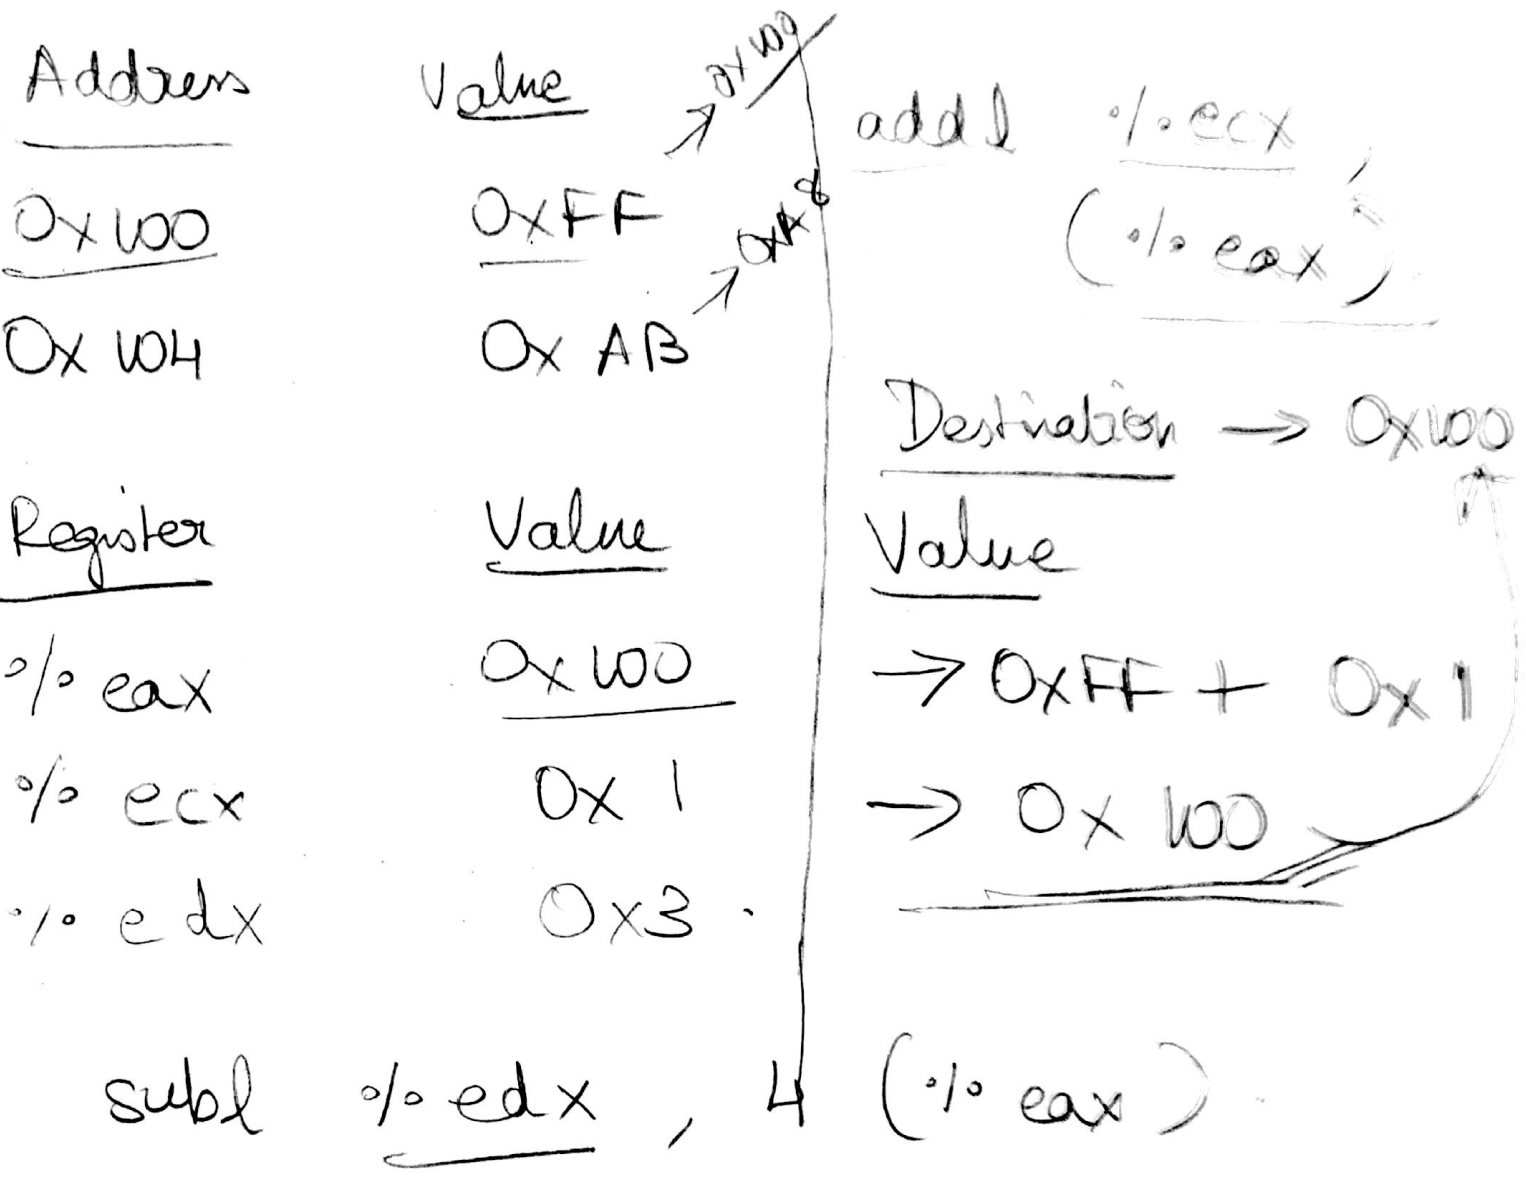 Address Value → 0x100
0x100 0xFF
0x104 0xAB → 0xA8
Register Value
%eax 0x100
%ecx 0x1
%edx 0x3
addl %ecx,
(%eax)
Destination → 0x100
Value
→ 0xFF + 0x1
→ 0x100
subl %edx, 4 (%eax)